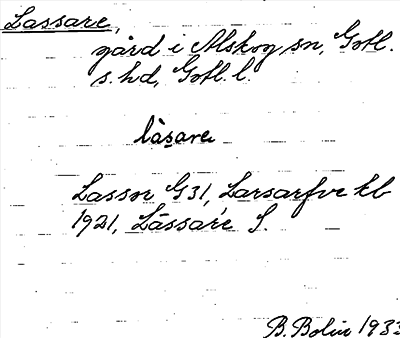 Lassare,
gård i Alskog sn, Gotl.
s. hd, Gotl. l.
làsare
Lassor G31, Larsarfve kb
1921, Lassare S.
B. Bolin 1933